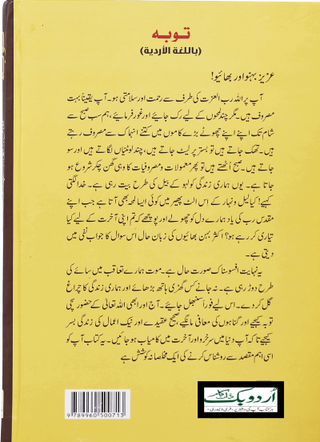 توبہ
(باللغة الأردية)
عزیز بہنو اور بھائیو!
آپ پر اللہ رب العزت کی طرف سے رحمت اور سلامتی ہو۔ آپ یقیناً بہت
مصروف ہیں۔ مگر چند لمحوں کے لیے رک جائیے اور غور فرمائیے، ہم سب صبح سے
شام تک اپنے اپنے چھوٹے بڑے کاموں میں کتنے انہماک سے مصروف رہتے
ہیں۔ تھک جاتے ہیں تو بستر پر لیٹ جاتے ہیں، چند لوٹنیاں لگاتے ہیں اور سو
جاتے ہیں۔ صبح اُٹھتے ہیں تو پھر معمولات و مصروفیات کا وہی گھن چکر شروع ہو
جاتا ہے۔ یوں ہماری زندگی کولہو کے بیل کی طرح بیت رہی ہے۔ خدا لگتی
کہیے! کیا لیل و نہار کے اس الٹ پھیر میں کوئی ایسا لمحہ بھی آتا ہے جب اپنے
مقدس رب کی یاد ہمارے دل کو چھولے اور پوچھے کہ تم اپنی آخرت کے لیے کیا
تیاری کر رہے ہو؟ اکثر بہن بھائیوں کی زبان حال اس سوال کا جواب نفی میں
دیتی ہے۔
یہ نہایت افسوسناک صورت حال ہے۔ موت ہمارے تعاقب میں سائے کی
طرح دوڑ رہی ہے۔ نہ جانے کس گھڑی ہاتھ بڑھائے اور ہماری زندگی کا چراغ
گل کر دے۔ اس لیے فوراً سنبھل جائیے۔ آج اور ابھی اللہ تعالیٰ کے حضور سچی
توبہ کیجیے اور گناہوں کی معافی مانگیے، صحیح عقیدے اور نیک اعمال کی زندگی بسر
کیجیے تاکہ آپ دنیا میں سرخرو اور آخرت میں کامیاب ہو جائیں۔ یہ کتاب آپ کو
اسی اہم مقصد سے روشناس کرنے کی ایک مخلصانہ کوشش ہے
9 789960 500713
اُردو بک